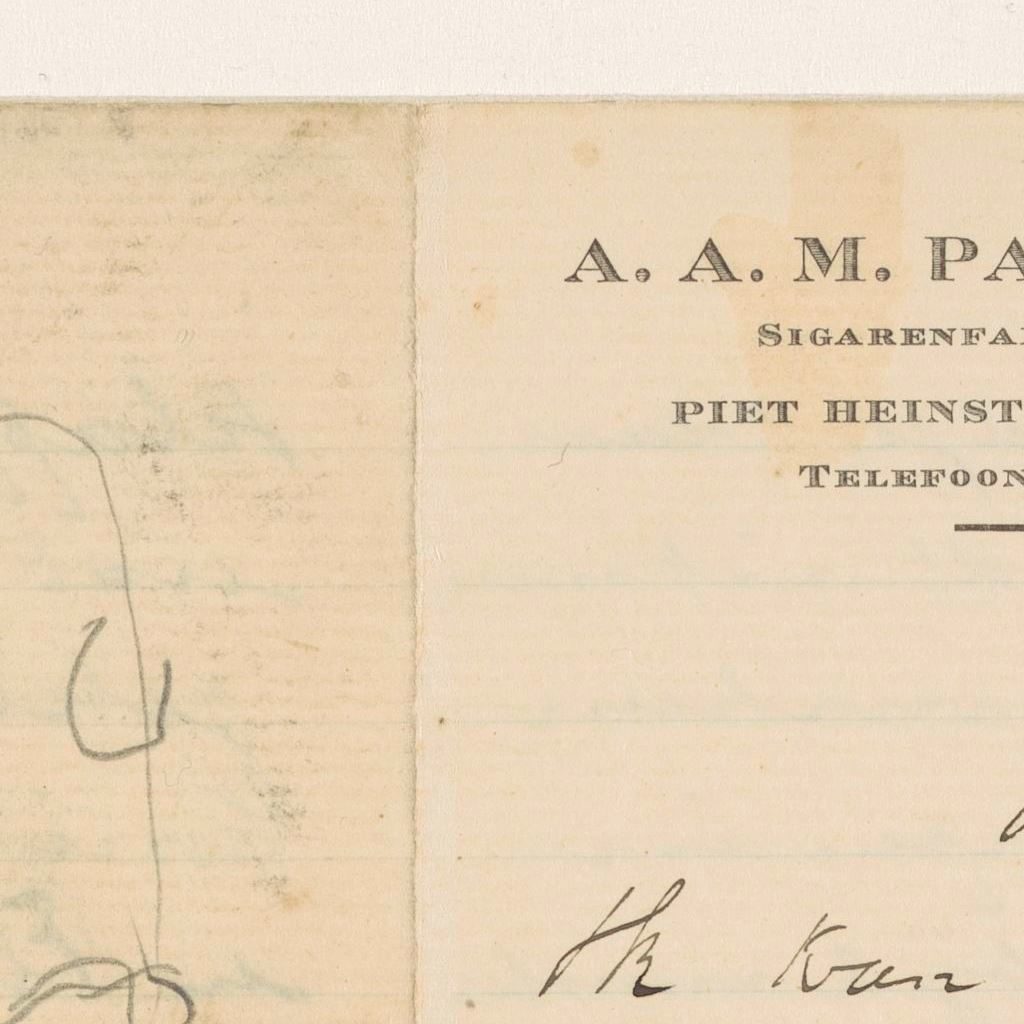 A. A. M. PA
SIGARENFA
PIET HEINST
TELEFOON
Ik kan